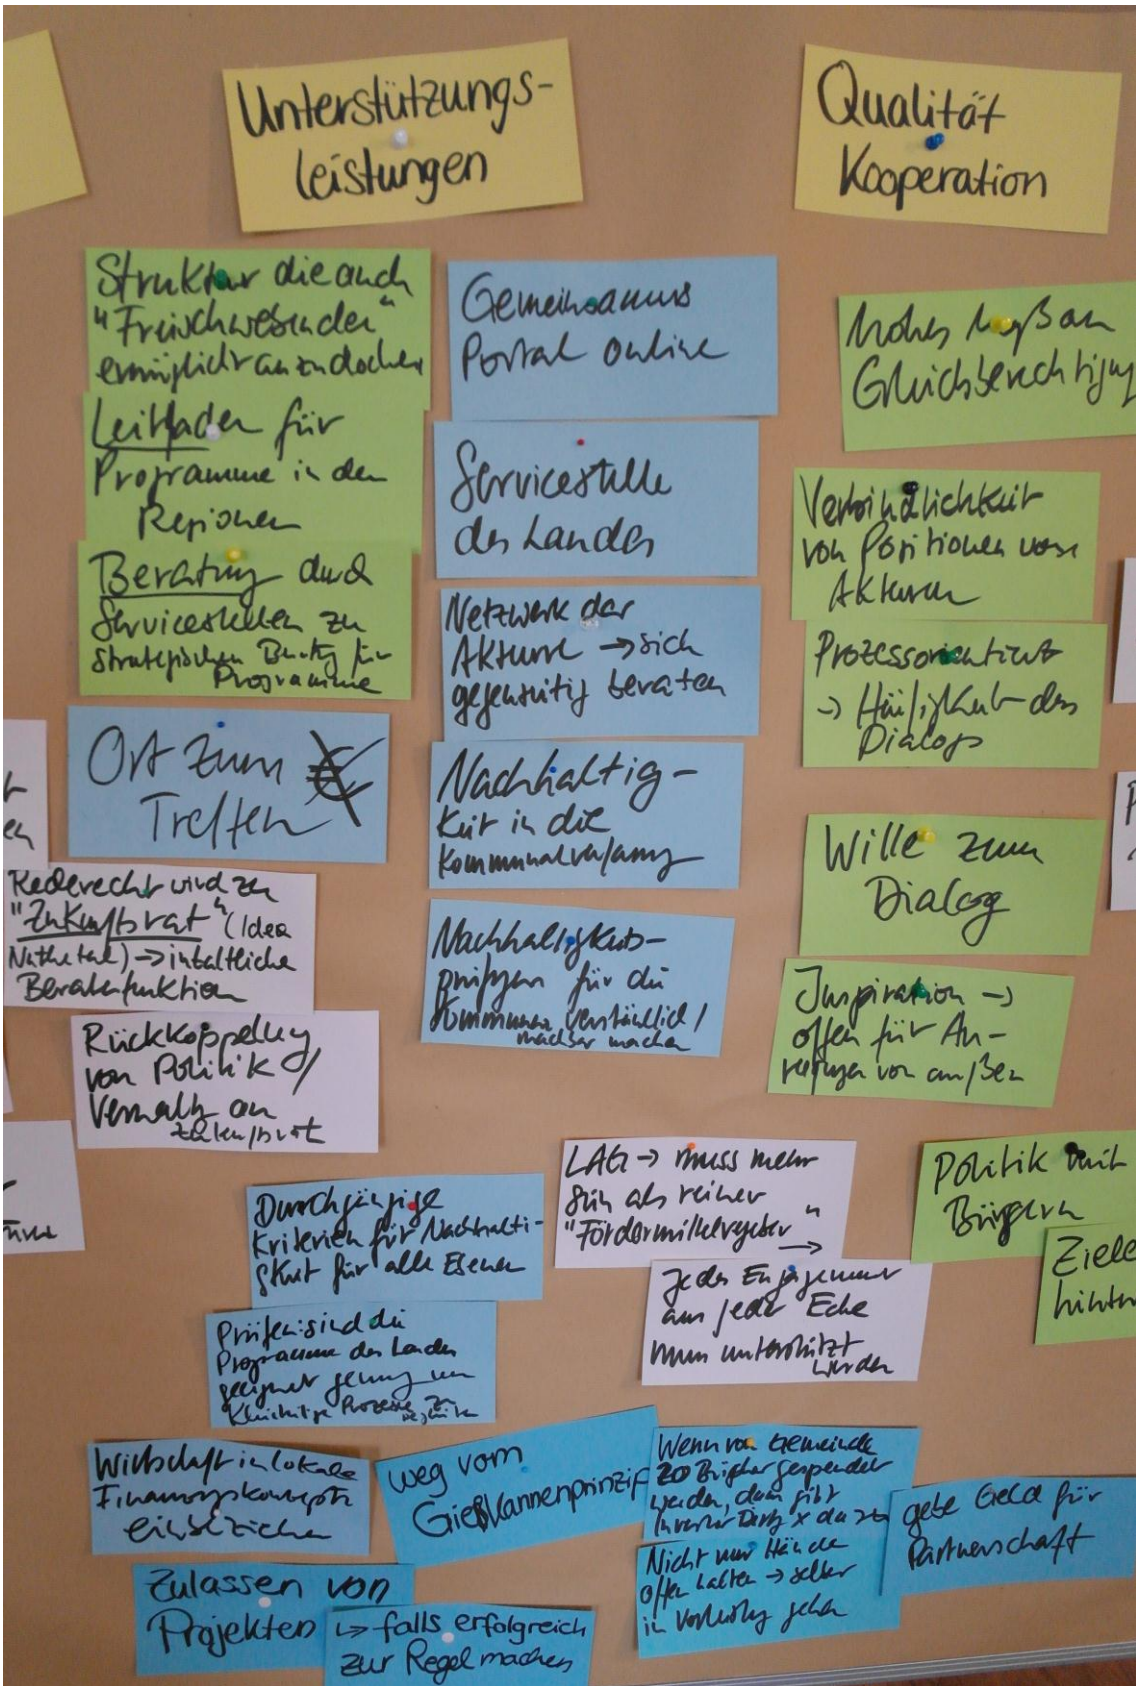 Unterstützungs-
leistungen
Qualität
Kooperation
Struktur die auch
"Freischwebenden"
ermöglicht anzudocken
Leitfaden für
Programme in den
Regionen
Beratung durch
Servicestellen zu
strategischen Beratung für
Programme
Ort zum
Treffen
Rederecht wird zu
"Zukunftsrat" (Idee
Nuthetal) → inhaltliche
Beraterfunktion
Rückkoppelung
von Politik /
Verwaltg an
Zukunftsrat
Gemeinsames
Portal online
Servicestelle
des Landes
Netzwerk der
Akteure → sich
gegenseitig beraten
Nachhaltig-
keit in die
Kommunalverfassung
Nachhaltigkeits-
für die
Kommunen verständlich /
machbar machen
hohes Maß an
Gleichberechtigung
Verbindlichkeit
von Positionen von
Akteuren
Prozessorientiert
→ Häufigkeit des
Dialogs
Wille zum
Dialog
Inspiration →
offen für An-
regungen von außen
Politik mit
Bürgern
Ziele
LAG → muss mehr
sein als reiner
"Fördermittelgeber"
→
Jedes Engagement
aus jeder Ecke
muss unterstützt
werden
Durchgängige
Kriterien für Nachhalti-
gkeit für alle Ebenen
Prüfen: sind die
Programme des Landes
geeignet genug um
Prozesse zu
Wirtschaft in lokale
Finanzierungskonzepte
einbeziehen
weg vom
Gießkannenprinzip
Wenn von Gemeinde
200 gespendet
werden, dann gibt
x dazu
Nicht nur Hände
offen halten → selber
in Vorleistg gehen
gebe Geld für
Partnerschaft
Zulassen von
Projekten
↳ falls erfolgreich
zur Regel machen